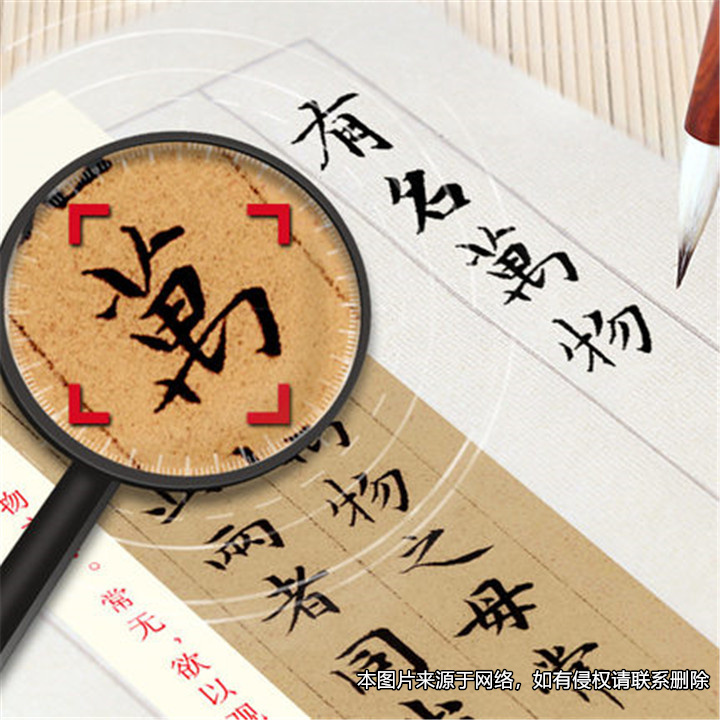 有名萬物
萬
物
之母常
此兩者同
物
常无，欲以观
本图片来源于网络，如有侵权请联系删除